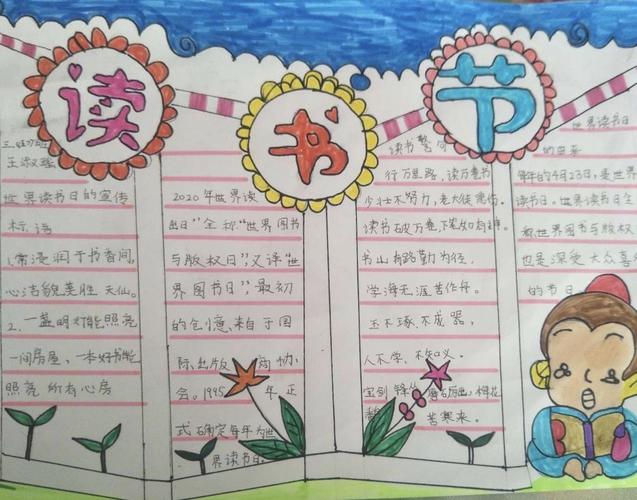 读书节
三
班
王淑瑶
世界读书日的宣传
标语
1.常浸润于书香间,
心洁貌美胜天仙。
2.一盏明灯能照亮
一间房屋、一本好书能
照亮所有心房
2020年世界读
出日”全称“世界图书
与版权日”,又译“世
界图书日”,最初
的创意来自于国
际出版商协
会。1995年正
式确定每年为世
界读书日。
读书警句
行万里路,读万卷书
少壮不努力,老大徒悲伤。
读书破万卷,下笔如有神。
书山有路勤为径,
学海无涯苦作舟。
玉不琢、不成器,
人不学、不知义。
宝剑锋从磨砺出,梅花
苦寒来。
世界读书日
的由来
每年的4月23日,是世界
读书日。世界读书日全
称世界图书与版权
也是深受大众喜
的节日。